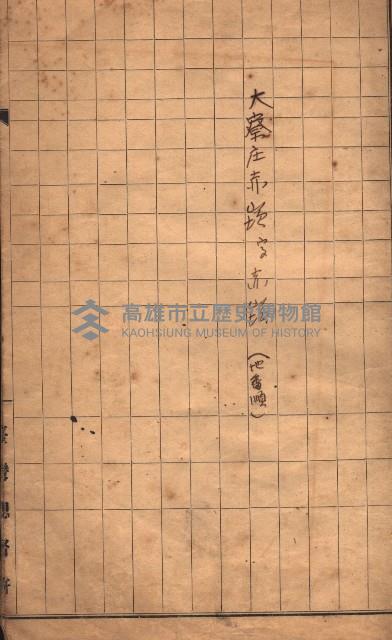 大寮庄赤崁字赤崁(地番順)
高雄市立歷史博物館
KAOHSIUNG MUSEUM OF HISTORY
臺灣總督府